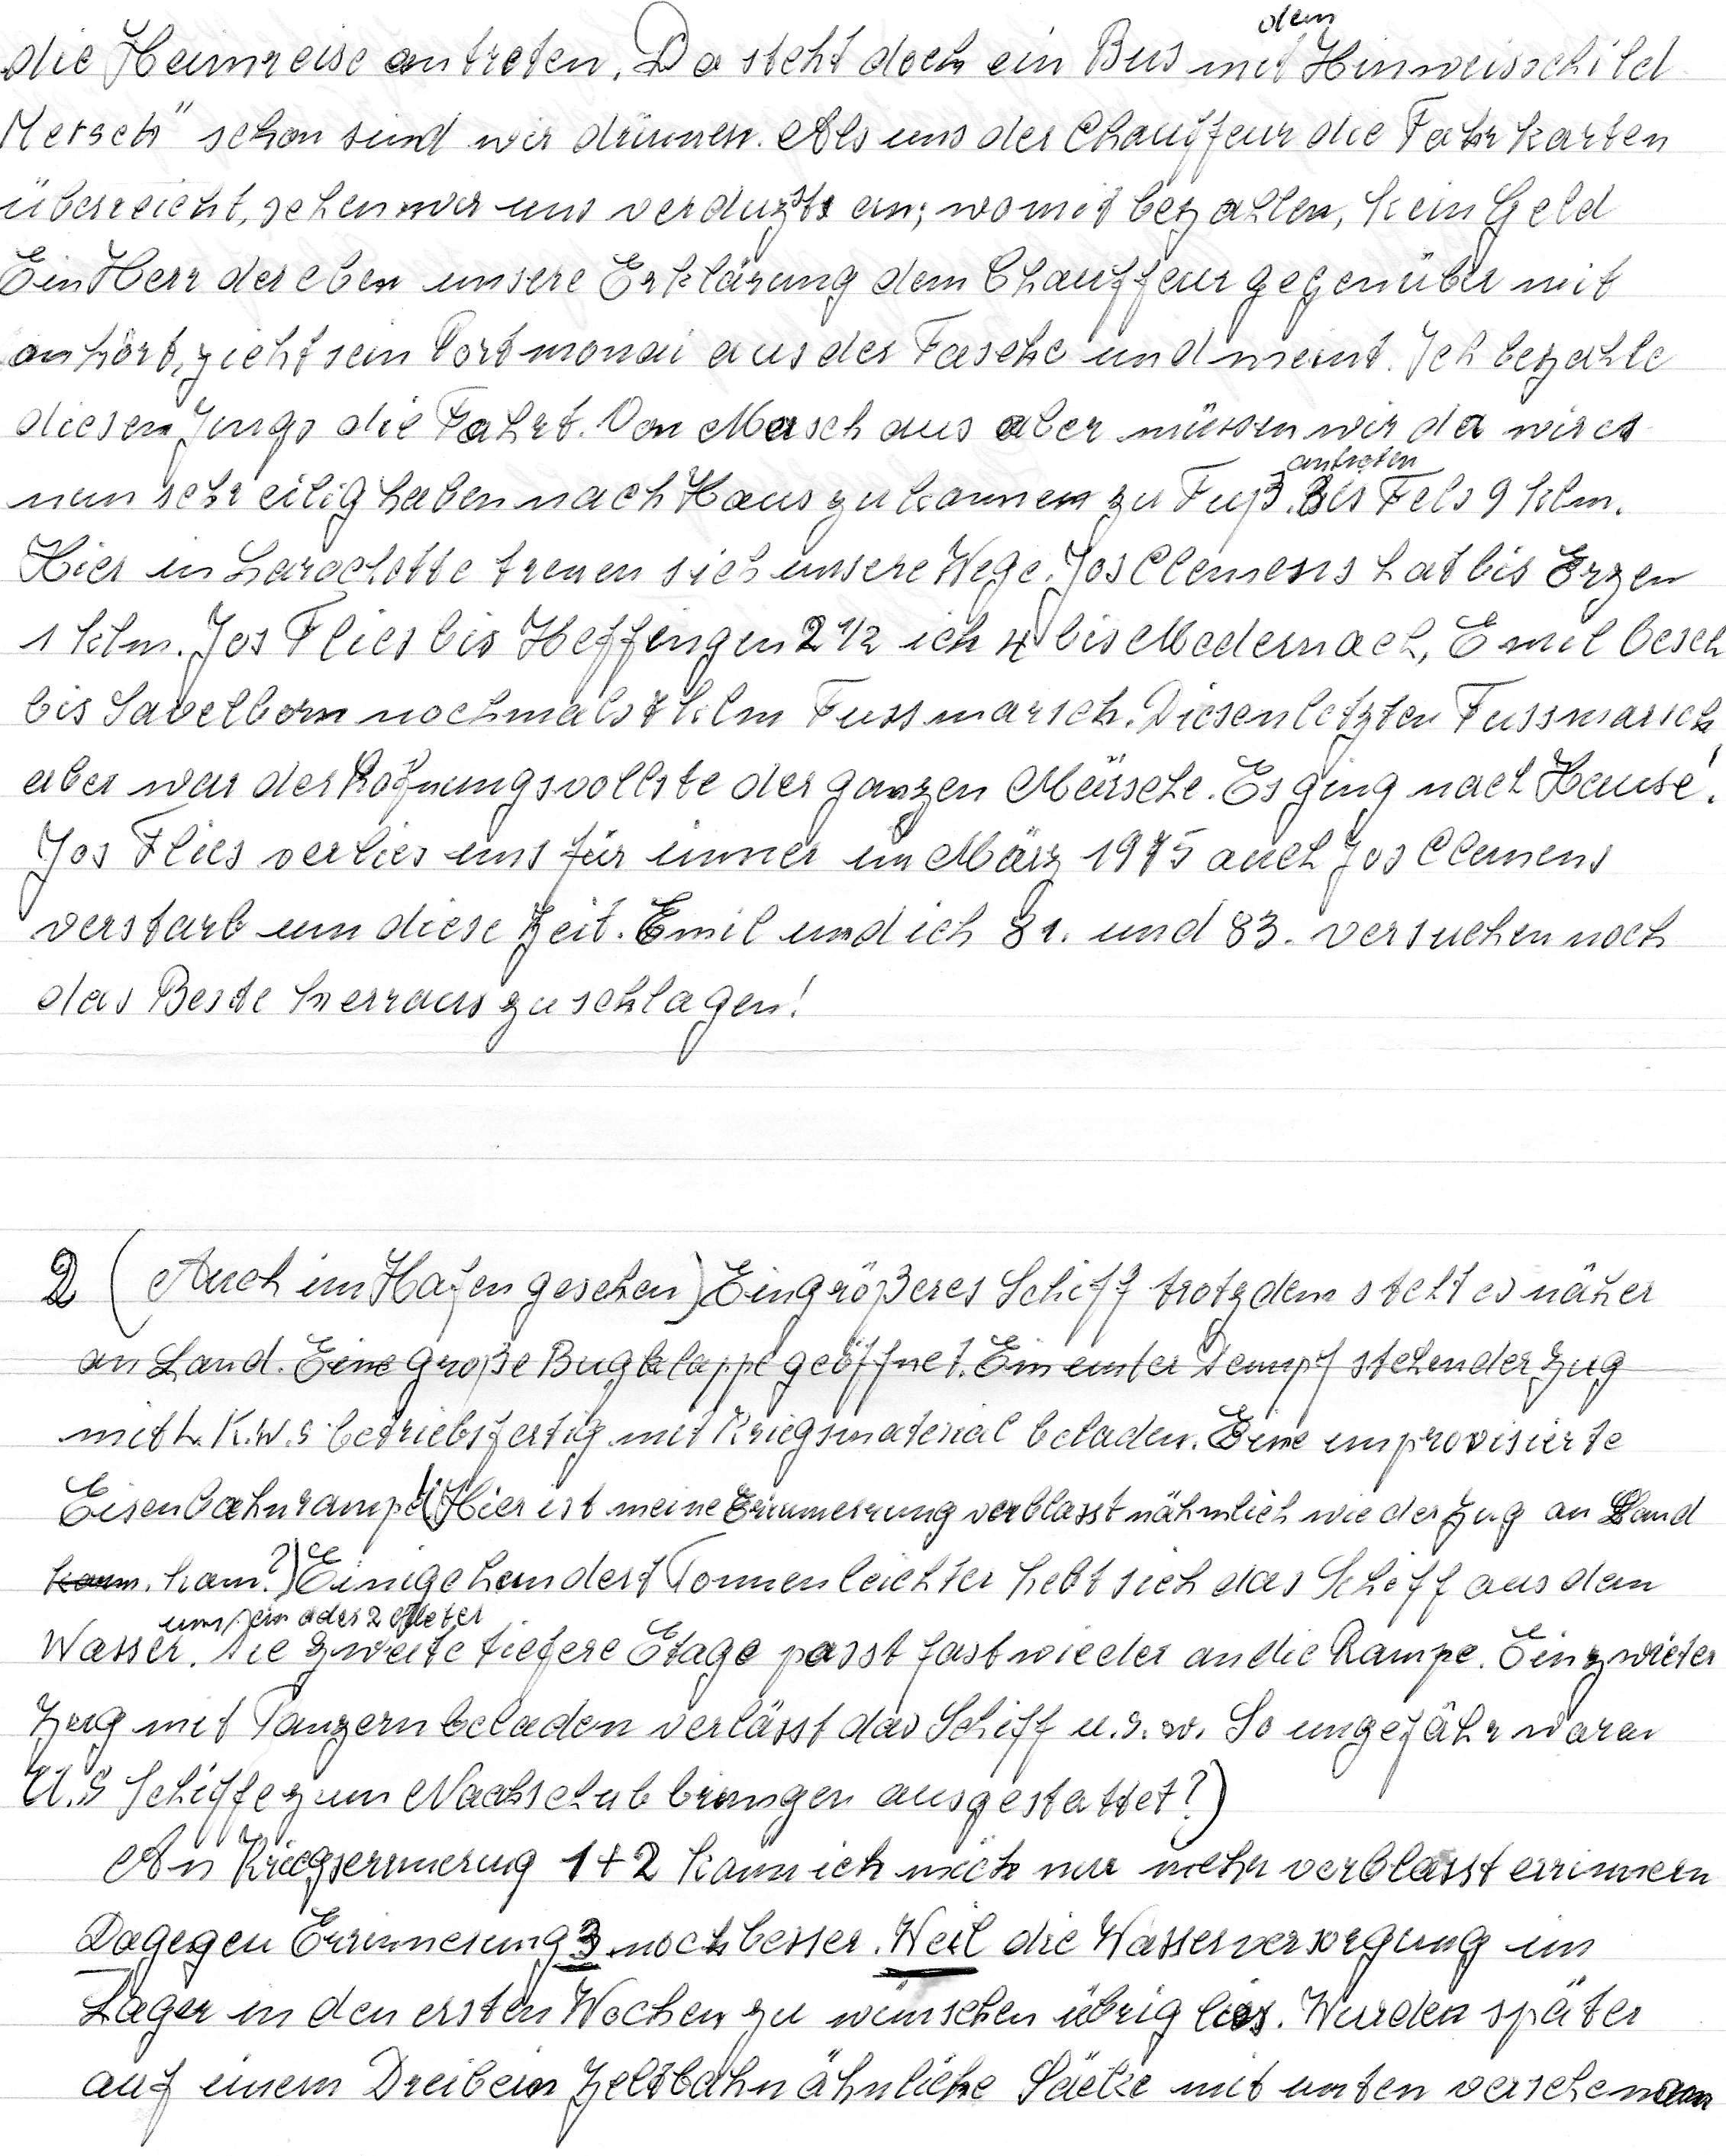 die Heimreise antreten. Da steht doch ein Bus mit dem Hinweisschild
Mersch" schon sind wir drinnen. Als uns der Chauffeur die Fahrkarten
überreicht, sehen wir uns verduzts an; womit bezahlen, kein Geld
Ein Herr der eben unsere Erklärung dem Chauffeur gegenüber mit
anhört, zieht sein Portmonai aus der Tasche und meint. Ich bezahle
diesen Jungs die Fahrt. Von Mersch aus aber müssen wir da wir es
nun sehr eilig haben nach Haus zu kommen zu Fuß antreten. Bis Fels 9 klm.
Hier in Larochette trenen sich unsere Wege. Jos Clemens hat bis Erzen
1 klm. Jos Flies bis Heffingen 2 1/2 ich 4 bis Medernach, Emil besch
bis Savelborn nochmals klm Fussmarsch. Diesen letzten Fussmarsch
aber war der Hofnungsvollste der ganzen Märsche. Es ging nach Hause!
Jos Flies verlies uns für immer im März 1975 auch Jos Clemens
verstarb um diese Zeit. Emil und ich 81. und 83. versuchen noch
das Beste herraus zu schlagen!
2 (Auch im Hafen gesehen) Ein größeres Schiff trotzdem steht es näher
an Land. Eine große Bugklappe geöffnet. Ein unter Dampf stehender Zug
mit L.K.W.s betriebsfertig mit Kriegsmaterial beladen. Eine improvisierte
Eisenbahnrampe! (Hier ist meine Erinnerrung verblasst nähmlich wie der Zug an Land
kamm. kam?) Einige hundert Tonnen leichter hebt sich das Schiff aus dem
Wasser. um ein oder 2 Meter die zweite tiefere Etage passt fast wieder an die Rampe. Ein zwieter
Zug mit Panzern beladen verlässt das Schiff u.s.w. So ungefähr waren
U.S Schiffe zum Nachschub bringen ausgestattet?)
An Kriegserinnerug 1+2 kann ich mich nur mehr verblasst errinnern
Dagegen Errinnerung 3 noch besser. Weil die Wasserversorgung im
Lager in den ersten Wochen zu wünschen übrig lies. Wurden später
auf einem Dreibein Zeltbahn ähnliche Säcke mit unten versehenen